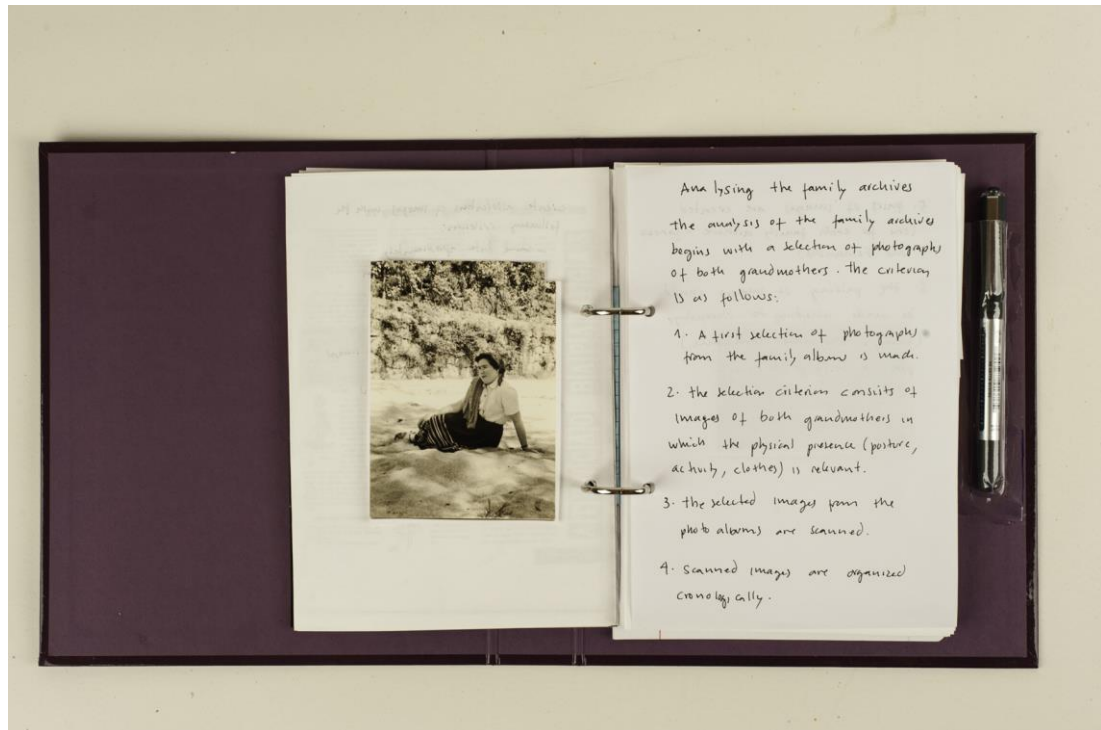 Analysing the family archives
the analysis of the family archives
begins with a selection of photographs
of both grandmothers. the criterion
is as follows:
1. A first selection of photographs
from the family albums is made.
2. the selection criterion consists of
images of both grandmothers in
which the physical presence (posture,
activity, clothes) is relevant.
3. the selected images from the
photo albums are scanned.
4. scanned images are organized
cronologically.